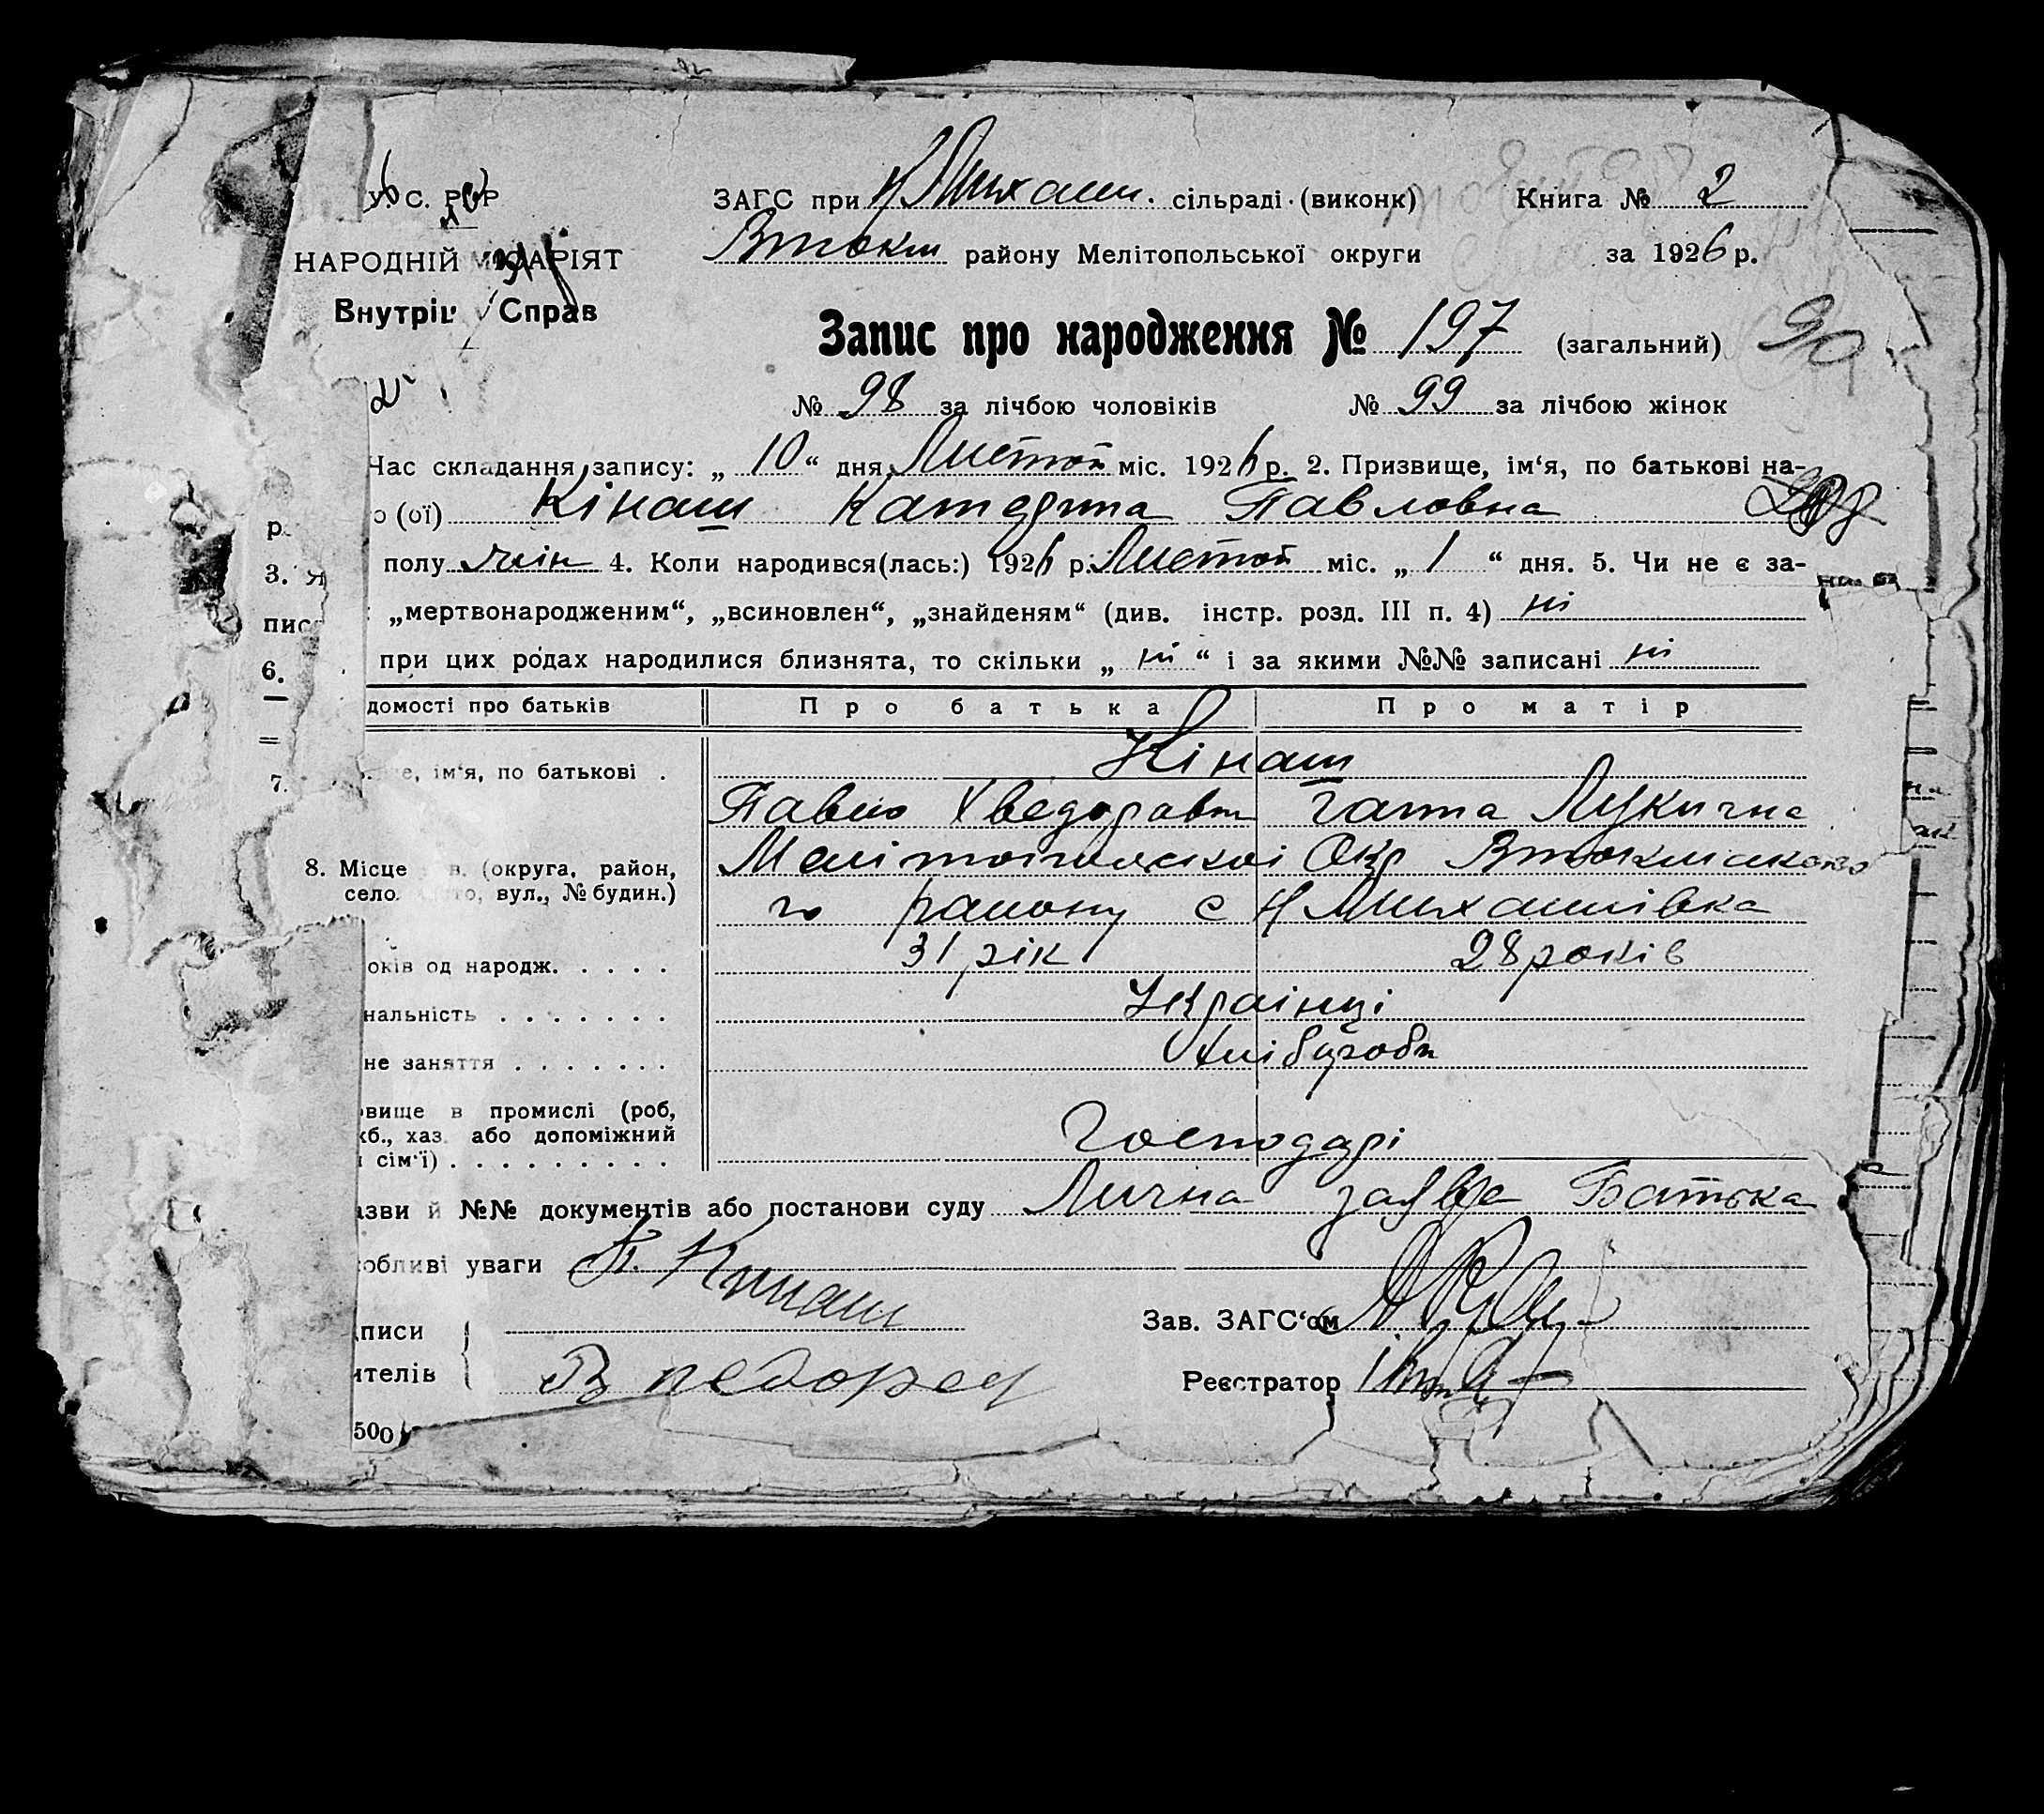 У. С. Р Р
ЗАГС при Н Михайл. сільраді (виконк) Книга № 2
НАРОДНІЙ АРІЯТ
Втокм району Мелітопольської округи за 1926 р.
Внутріш Справ
Запис про народження № 197 (загальний) 90
№ 98 за лічбою чоловіків № 99 за лічбою жінок
Час складання запису: „ 10 “ дня Листоп міс. 1926 р. 2. Призвище, ім‘я, по батькові на-
р. о (ої) Кінаш Катерина Павловна
3. Я полу жін 4. Коли народився(лась:) 1926 р. Листоп міс. „ 1 “ дня. 5. Чи не є за-
пис „мертвонародженим“, „всиновлен“, „знайденям“ (див. інстр. розд. III п. 4) ні
6. при цих родах народилися близнята, то скільки „ ні “ і за якими №№ записані ні
домості про батьків Про батька Про матір
7. ім‘я, по батькові . Кінаш
Павло Хведоравич Ганна Лукична
8. Місце в. (округа, район, Мелітопольскої Окр Втокмакско
село. вул., № будин.) го району с Н Михайлівка
оків од народж. . . . . 31 рік 28 років
нальність . . . . . . . Украінці
не заняття . . . . . . . Хлібороби
вище в промислі (роб,
кб., хаз. або допоміжний Господарі
сім‘ї) . . . . . . . . .
азви й №№ документів або постанови суду Лична заява Батька
обливі уваги П. Кинаш
писи
Зав. ЗАГС‘ом
ителів
Реєстратор
500